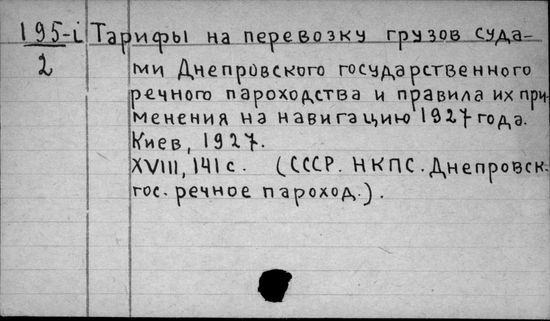 195-i Тарифы на перевозку грузов суда-
2
ми Днепровского государственного
речного пароходства и правила их при-
менения на навигацию 1927 года.
Киев, 1927.
XVIII, 141 с. (СССР. НКПС. Днепровск.
гос. речное пароход.).